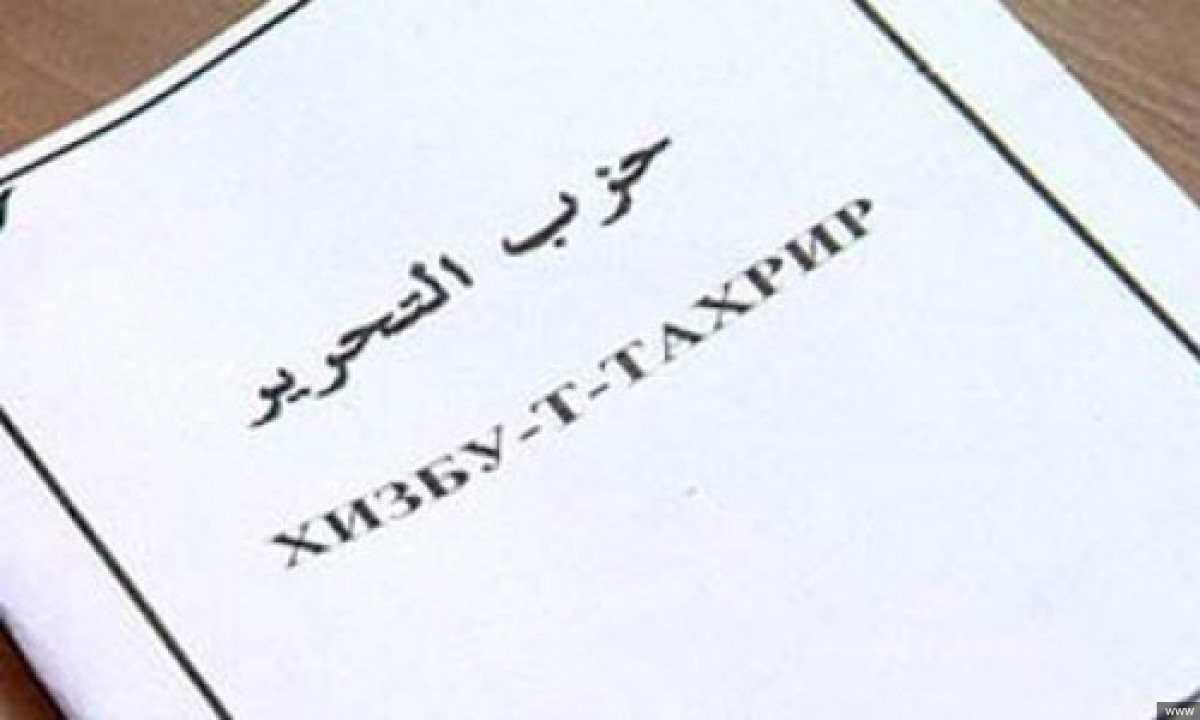 حزب التحرير
ХИЗБУ-Т-ТАХРИР
www